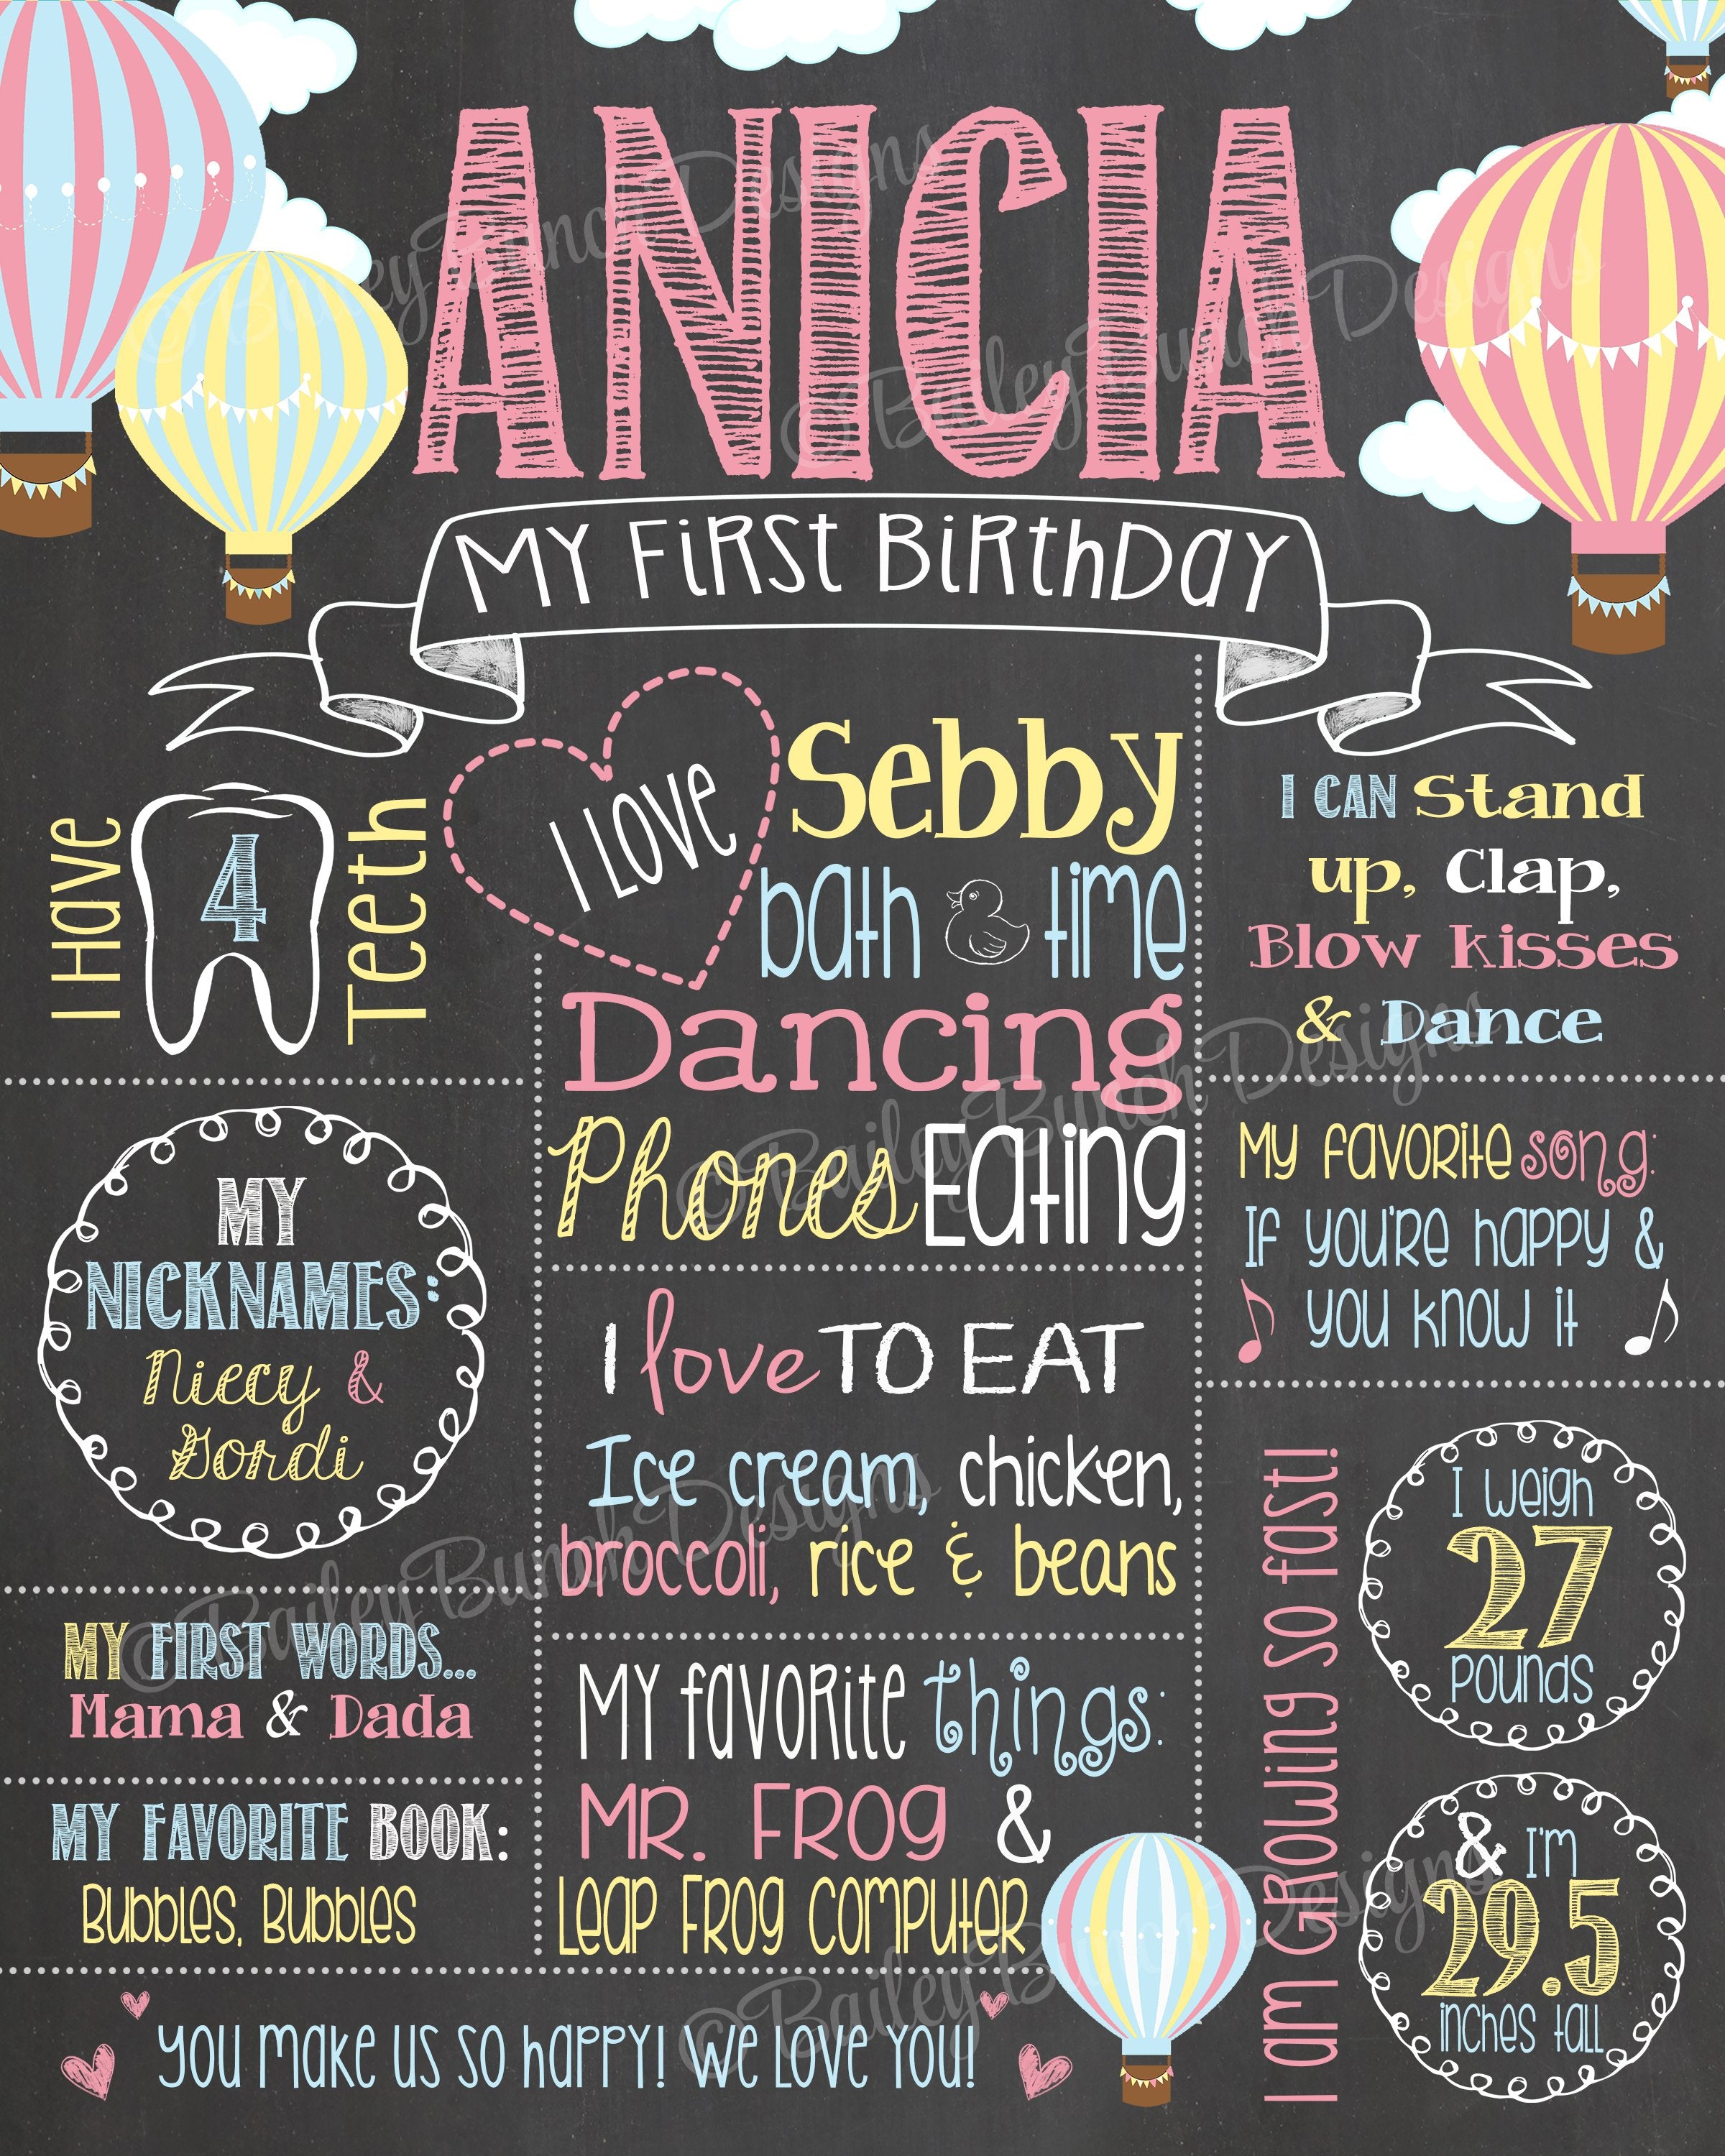 ANICIA
My First Birthday
I Have
4
Teeth
I LOVE
Sebby
bath time
Dancing
Phones Eating
I CAN Stand
up, Clap,
Blow Kisses
& Dance
MY
NICKNAMES:
Niecy &
Gordi
My favorite song:
If you're happy &
you know it
I love TO EAT
Ice cream, chicken,
broccoli, rice & beans
MY FIRST WORDS...
Mama & Dada
MY FAVORITE BOOK:
Bubbles, Bubbles
My favorite things:
Mr. Frog &
Leap Frog Computer
I am growing so fast!
I weigh
27
pounds
& I'm
29.5
inches tall
You make us so happy! We love you!
©Bailey Bunch Designs
©Bailey Bunch Designs
©Bailey Bunch Designs
©Bailey Bunch Designs
©Bailey Bunch Designs